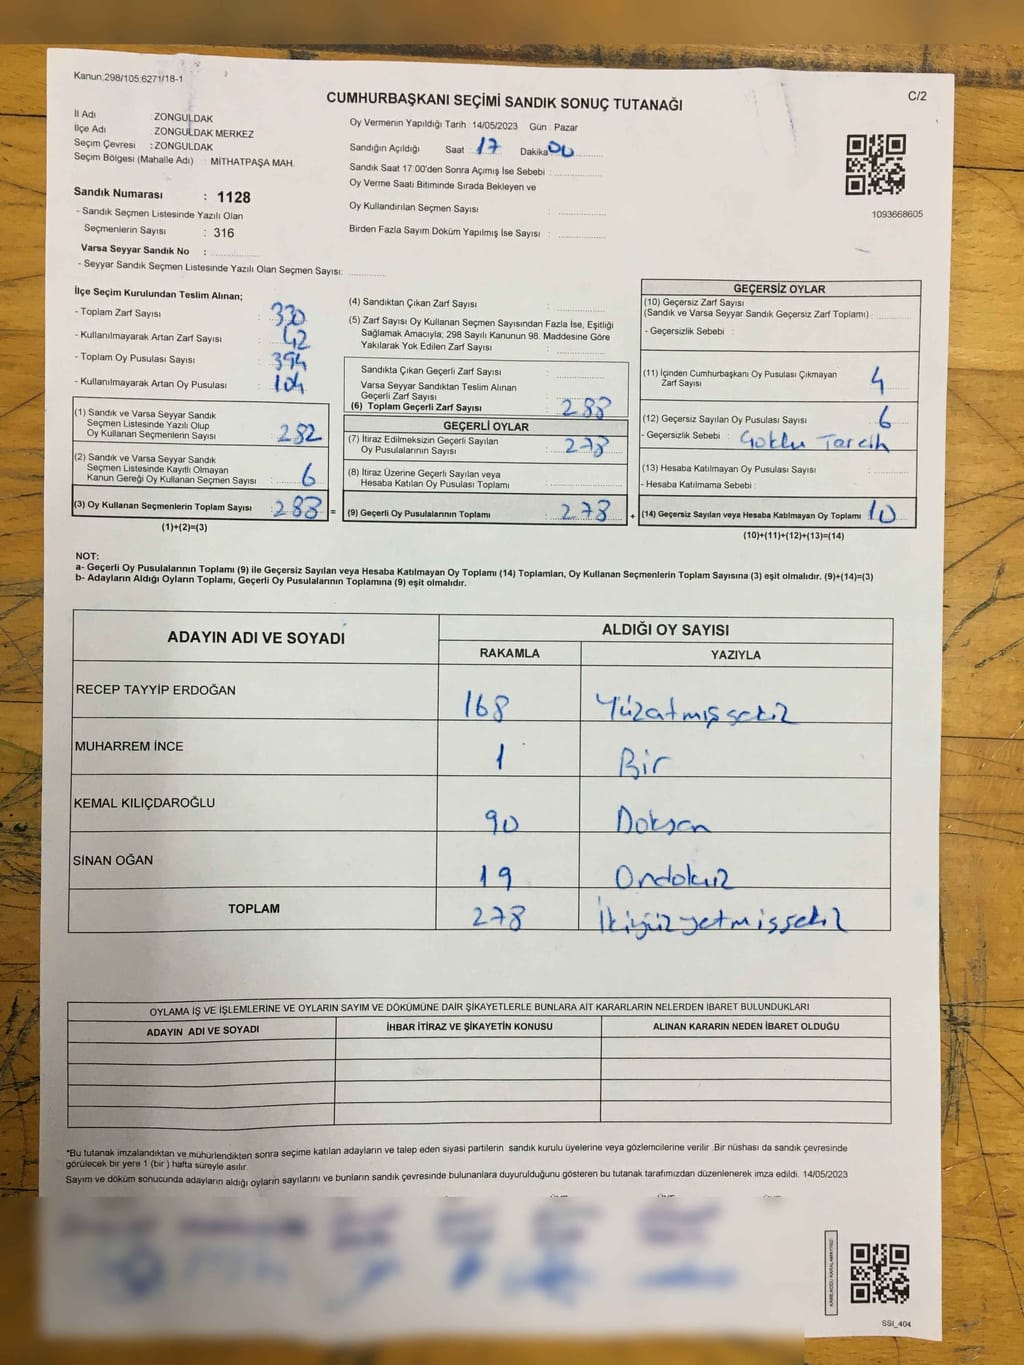 Kanun;298/105,6271/18-1
C/2
CUMHURBAŞKANI SEÇİMİ SANDIK SONUÇ TUTANAĞI
İl Adı ZONGULDAK
İlçe Adı : ZONGULDAK MERKEZ
Seçim Çevresi : ZONGULDAK
Seçim Bölgesi (Mahalle Adı) : MİTHATPAŞA MAH.
Sandık Numarası : 1128
- Sandık Seçmen Listesinde Yazılı Olan
Seçmenlerin Sayısı : 316
Varsa Seyyar Sandık No :
- Seyyar Sandık Seçmen Listesinde Yazılı Olan Seçmen Sayısı:
Oy Vermenin Yapıldığı Tarih : 14/05/2023 Gün : Pazar
Sandığın Açıldığı Saat 17 Dakika 00
Sandık Saat 17:00'den Sonra Açımış İse Sebebi :
Oy Verme Saati Bitiminde Sırada Bekleyen ve
Oy Kullandırılan Seçmen Sayısı :
Birden Fazla Sayım Döküm Yapılmış İse Sayısı :
1093668605
İlçe Seçim Kurulundan Teslim Alınan;
- Toplam Zarf Sayısı : 330
- Kullanılmayarak Artan Zarf Sayısı : 42
- Toplam Oy Pusulası Sayısı : 394
- Kullanılmayarak Artan Oy Pusulası : 104
(1) Sandık ve Varsa Seyyar Sandık
Seçmen Listesinde Yazılı Olup
Oy Kullanan Seçmenlerin Sayısı : 282
(2) Sandık ve Varsa Seyyar Sandık
Seçmen Listesinde Kayıtlı Olmayan
Kanun Gereği Oy Kullanan Seçmen Sayısı : 6
(3) Oy Kullanan Seçmenlerin Toplam Sayısı : 288 =
(1)+(2)=(3)
(4) Sandıktan Çıkan Zarf Sayısı :
(5) Zarf Sayısı Oy Kullanan Seçmen Sayısından Fazla İse, Eşitliği
Sağlamak Amacıyla; 298 Sayılı Kanunun 98. Maddesine Göre
Yakılarak Yok Edilen Zarf Sayısı :
Sandıkta Çıkan Geçerli Zarf Sayısı :
Varsa Seyyar Sandıktan Teslim Alınan
Geçerli Zarf Sayısı :
(6) Toplam Geçerli Zarf Sayısı : 288
GEÇERLİ OYLAR
(7) İtiraz Edilmeksizin Geçerli Sayılan
Oy Pusulalarının Sayısı : 278
(8) İtiraz Üzerine Geçerli Sayılan veya
Hesaba Katılan Oy Pusulası Toplamı :
(9) Geçerli Oy Pusulalarının Toplamı : 278 +
GEÇERSİZ OYLAR
(10) Geçersiz Zarf Sayısı
(Sandık ve Varsa Seyyar Sandık Geçersiz Zarf Toplamı) :
- Geçersizlik Sebebi :
(11) İçinden Cumhurbaşkanı Oy Pusulası Çıkmayan
Zarf Sayısı 4
(12) Geçersiz Sayılan Oy Pusulası Sayısı : 6
- Geçersizlik Sebebi : Çoklu Tercih
(13) Hesaba Katılmayan Oy Pusulası Sayısı :
- Hesaba Katılmama Sebebi :
(14) Geçersiz Sayılan veya Hesaba Katılmayan Oy Toplamı 10
(10)+(11)+(12)+(13)=(14)
NOT:
a- Geçerli Oy Pusulalarının Toplamı (9) ile Geçersiz Sayılan veya Hesaba Katılmayan Oy Toplamı (14) Toplamları, Oy Kullanan Seçmenlerin Toplam Sayısına (3) eşit olmalıdır. (9)+(14)=(3)
b- Adayların Aldığı Oyların Toplamı, Geçerli Oy Pusulalarının Toplamına (9) eşit olmalıdır.
ADAYIN ADI VE SOYADI ALDIĞI OY SAYISI
RAKAMLA YAZIYLA
RECEP TAYYİP ERDOĞAN 168 Yüzatmışsekiz
MUHARREM İNCE 1 Bir
KEMAL KILIÇDAROĞLU 90 Doksan
SİNAN OĞAN 19 Ondokuz
TOPLAM 278 İkiyüzyetmişsekiz
OYLAMA İŞ VE İŞLEMLERİNE VE OYLARIN SAYIM VE DÖKÜMÜNE DAİR ŞİKAYETLERLE BUNLARA AİT KARARLARIN NELERDEN İBARET BULUNDUKLARI
ADAYIN ADI VE SOYADI İHBAR İTİRAZ VE ŞİKAYETİN KONUSU ALINAN KARARIN NEDEN İBARET OLDUĞU
*Bu tutanak imzalandıktan ve mühürlendikten sonra seçime katılan adayların ve talep eden siyasi partilerin sandık kurulu üyelerine veya gözlemcilerine verilir .Bir nüshası da sandık çevresinde
görülecek bir yere 1 (bir ) hafta süreyle asılır.
Sayım ve döküm sonucunda adayların aldığı oyların sayılarını ve bunların sandık çevresinde bulunanlara duyurulduğunu gösteren bu tutanak tarafımızdan düzenlenerek imza edildi. 14/05/2023
SSİ_404